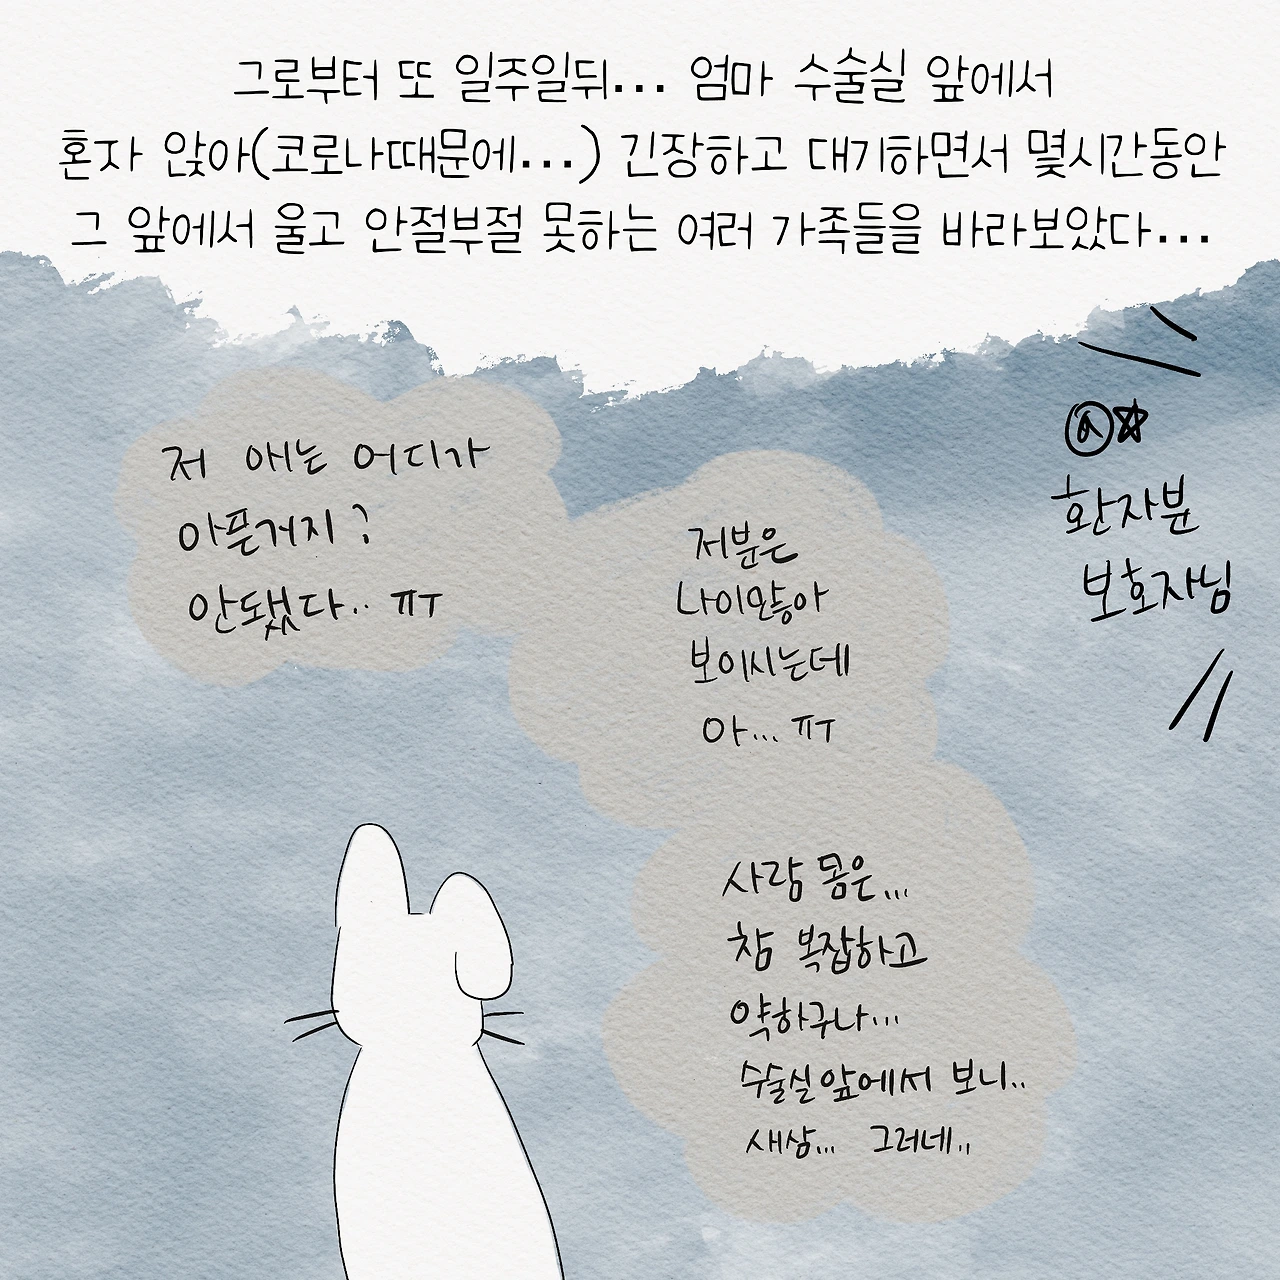 그로부터 또 일주일뒤... 엄마 수술실 앞에서
혼자 앉아(코로나때문에...) 긴장하고 대기하면서 몇시간동안
그 앞에서 울고 안절부절 못하는 여러 가족들을 바라보았다...
저 애는 어디가
아픈거지?
안됐다.. ㅠㅜ
저분은
나이많아
보이시는데
아... ㅠㅜ
사람 몸은...
참 복잡하고
약하구나...
수술실 앞에서 보니..
새삼... 그러네..
환자분
보호자님